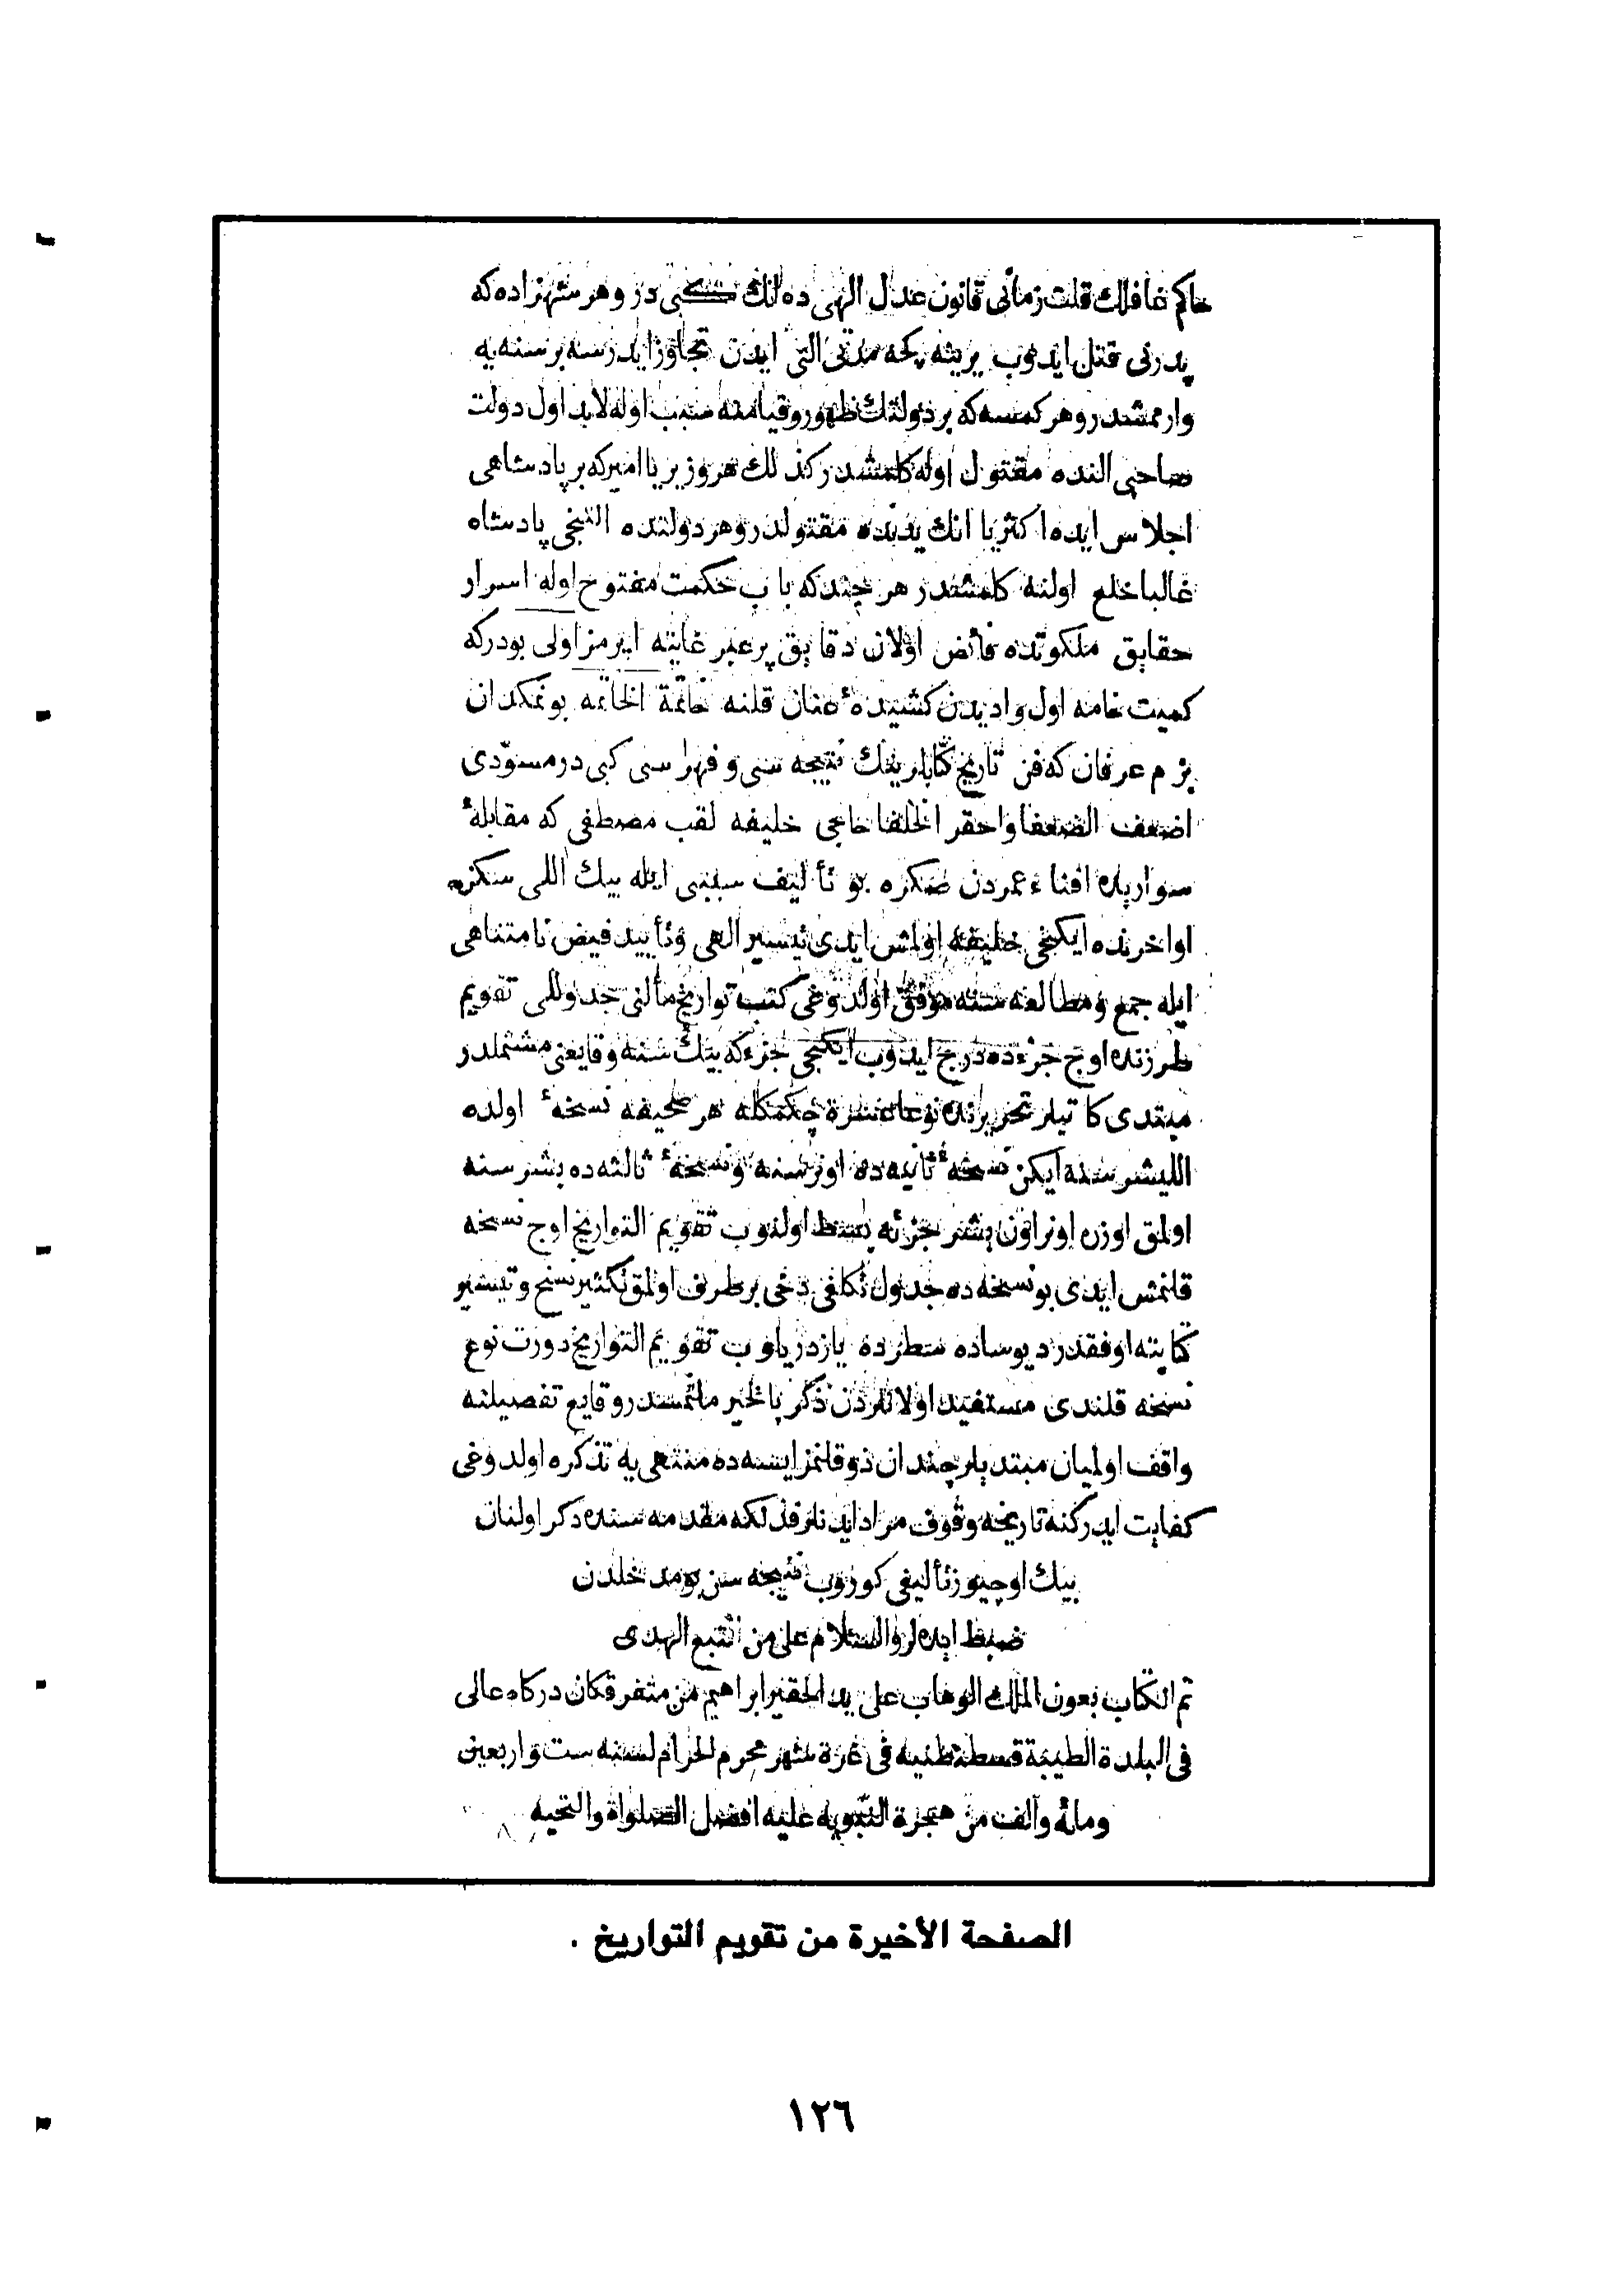 حاكم غافللك قلت زمانى قانون عدل الهى ده انك در و هر شهزاده كه
پدرنى قتل ايدوب يرينه كچه مدتى التى ايدن تجاوز ايدرسه بر سنه يه
وارممشدر و هر كمسه كه بر دولتك ظهور و قيامنه سبب اوله لابد اول دولت
صاحبى النده مقتول اوله كلمشدر كذلك هر وزير يا امير كه بر پادشاهى
اجلاس ايده اكثريا انك يدنده مقتولدر و هر دولتده التنجى پادشاه
غالبا خلع اولنه كلمشدر هر چند كه باب حكمت مفتوح اوله اسرار
حقايق ملكوتده فائض اولان دقايق پر عبر غايته ايرمز اولى بودر كه
كميت خامه اول واديدن كشيده ٔ عنان قلنه خاتمة الخاتمه بو نمكدان
بزم عرفان كه فن تاريخ كتابلرينك نتيجه سى و فهراسى كبى در مسوّدى
اضعف الضعفا و احقر الخلفا حاجى خليفه لقب مصطفى كه مقابله ٔ
سواريده افناء عمردن صكره بو تأليف سببى ايله بيك اللى سكز
اواخرنده ايكنجى خليفه اولمش ايدى تيسير الهى و تأييد فيض نامتناهى
ايله جمع و مطالعه سنه موفق اولدوغى كتب تواريخ مألنى جدوللى تقويم
طرزنده اوج جزءده درج ايدوب ايكنجى جزء كه بيك سنه وقايعنى مشتملدر
مبتدى كاتبلر تحريرنده نوعا چكمكله هر صحيفه نسخه ٔ اولده
الليشر سنه ايكن نسخه ٔ ثانيه ده اونر سنه و نسخه ٔ ثالثه ده بشر سنه
اولمق اوزره اونر اون بشر جزئه بسط اولنوب تقويم التواريخ اوج نسخه
قلنمش ايدى بو نسخه ده جدول تكلفى دخى بر طرف اولمق تكثير نسخ و تيسير
كتابته اوفقدر ديو ساده سطرده يازدريلوب تقويم التواريخ دورت نوع
نسخه قلندى مستفيد اولانلردن ذكر بالخير ملتمسدر وقايع تفصيلنه
واقف اولميان مبتديلر چندان ذوقلنمز ايسه ده منتهى يه تذكره اولدوغى
كفايت ايدر كنه تاريخه وقوف مراد ايدنلر فذلكه مقدمه سنده ذكر اولنان
بيك اوچيوز تأليفى كوروب نتيجه سن بو مدخلدن
ضبط ايده لر والسلام على من اتبع الهدى
تم الكتاب بعون الملك الوهاب على يد الحقير ابراهيم من متفرقكان دركاه عالى
فى البلدة الطيبة قسطنطنيه فى غرة شهر محرم الحرام لسنه ست و اربعين
ومائه وألف من هجرة النبويه عليه افضل الصلواة والتحيه
الصفحة الأخيرة من تقويم التواريخ .
١٢٦